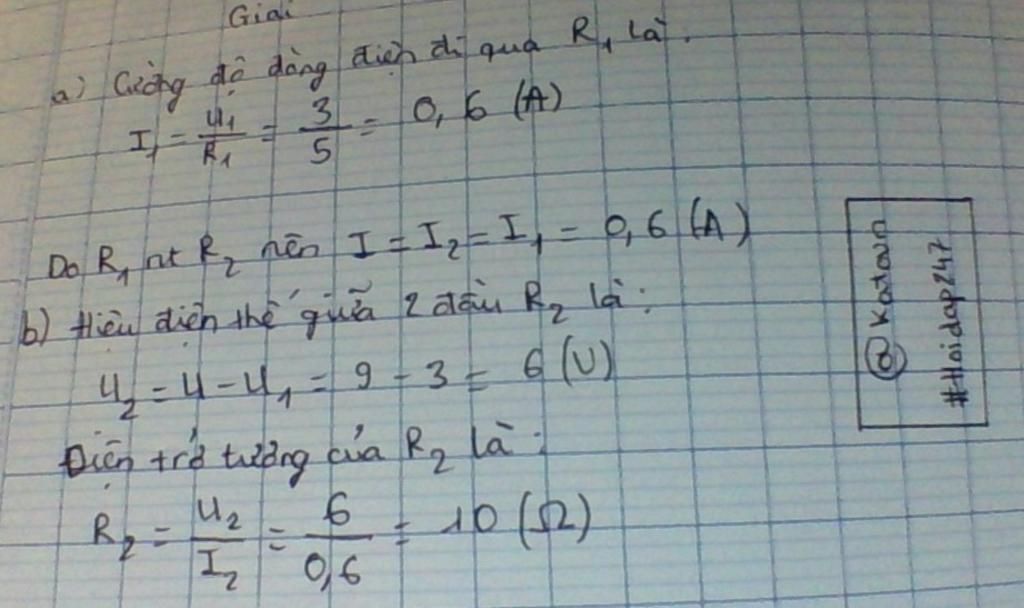 Giải
a) Cường độ dòng điện đi qua R₁ là:
I₁ = U₁/R₁ = 3/5 = 0,6 (A)
Do R₁ nt R₂ nên I = I₂ = I₁ = 0,6 (A)
b) Hiệu điện thế giữa 2 đầu R₂ là:
U₂ = U - U₁ = 9 - 3 = 6 (V)
Điện trở tương của R₂ là:
R₂ = U₂/I₂ = 6/0,6 = 10 (Ω)
@Katoun
#Hoidap247